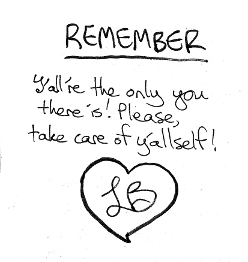 REMEMBER
Y'all're the only you
there is! Please,
take care of y'allself!
LB